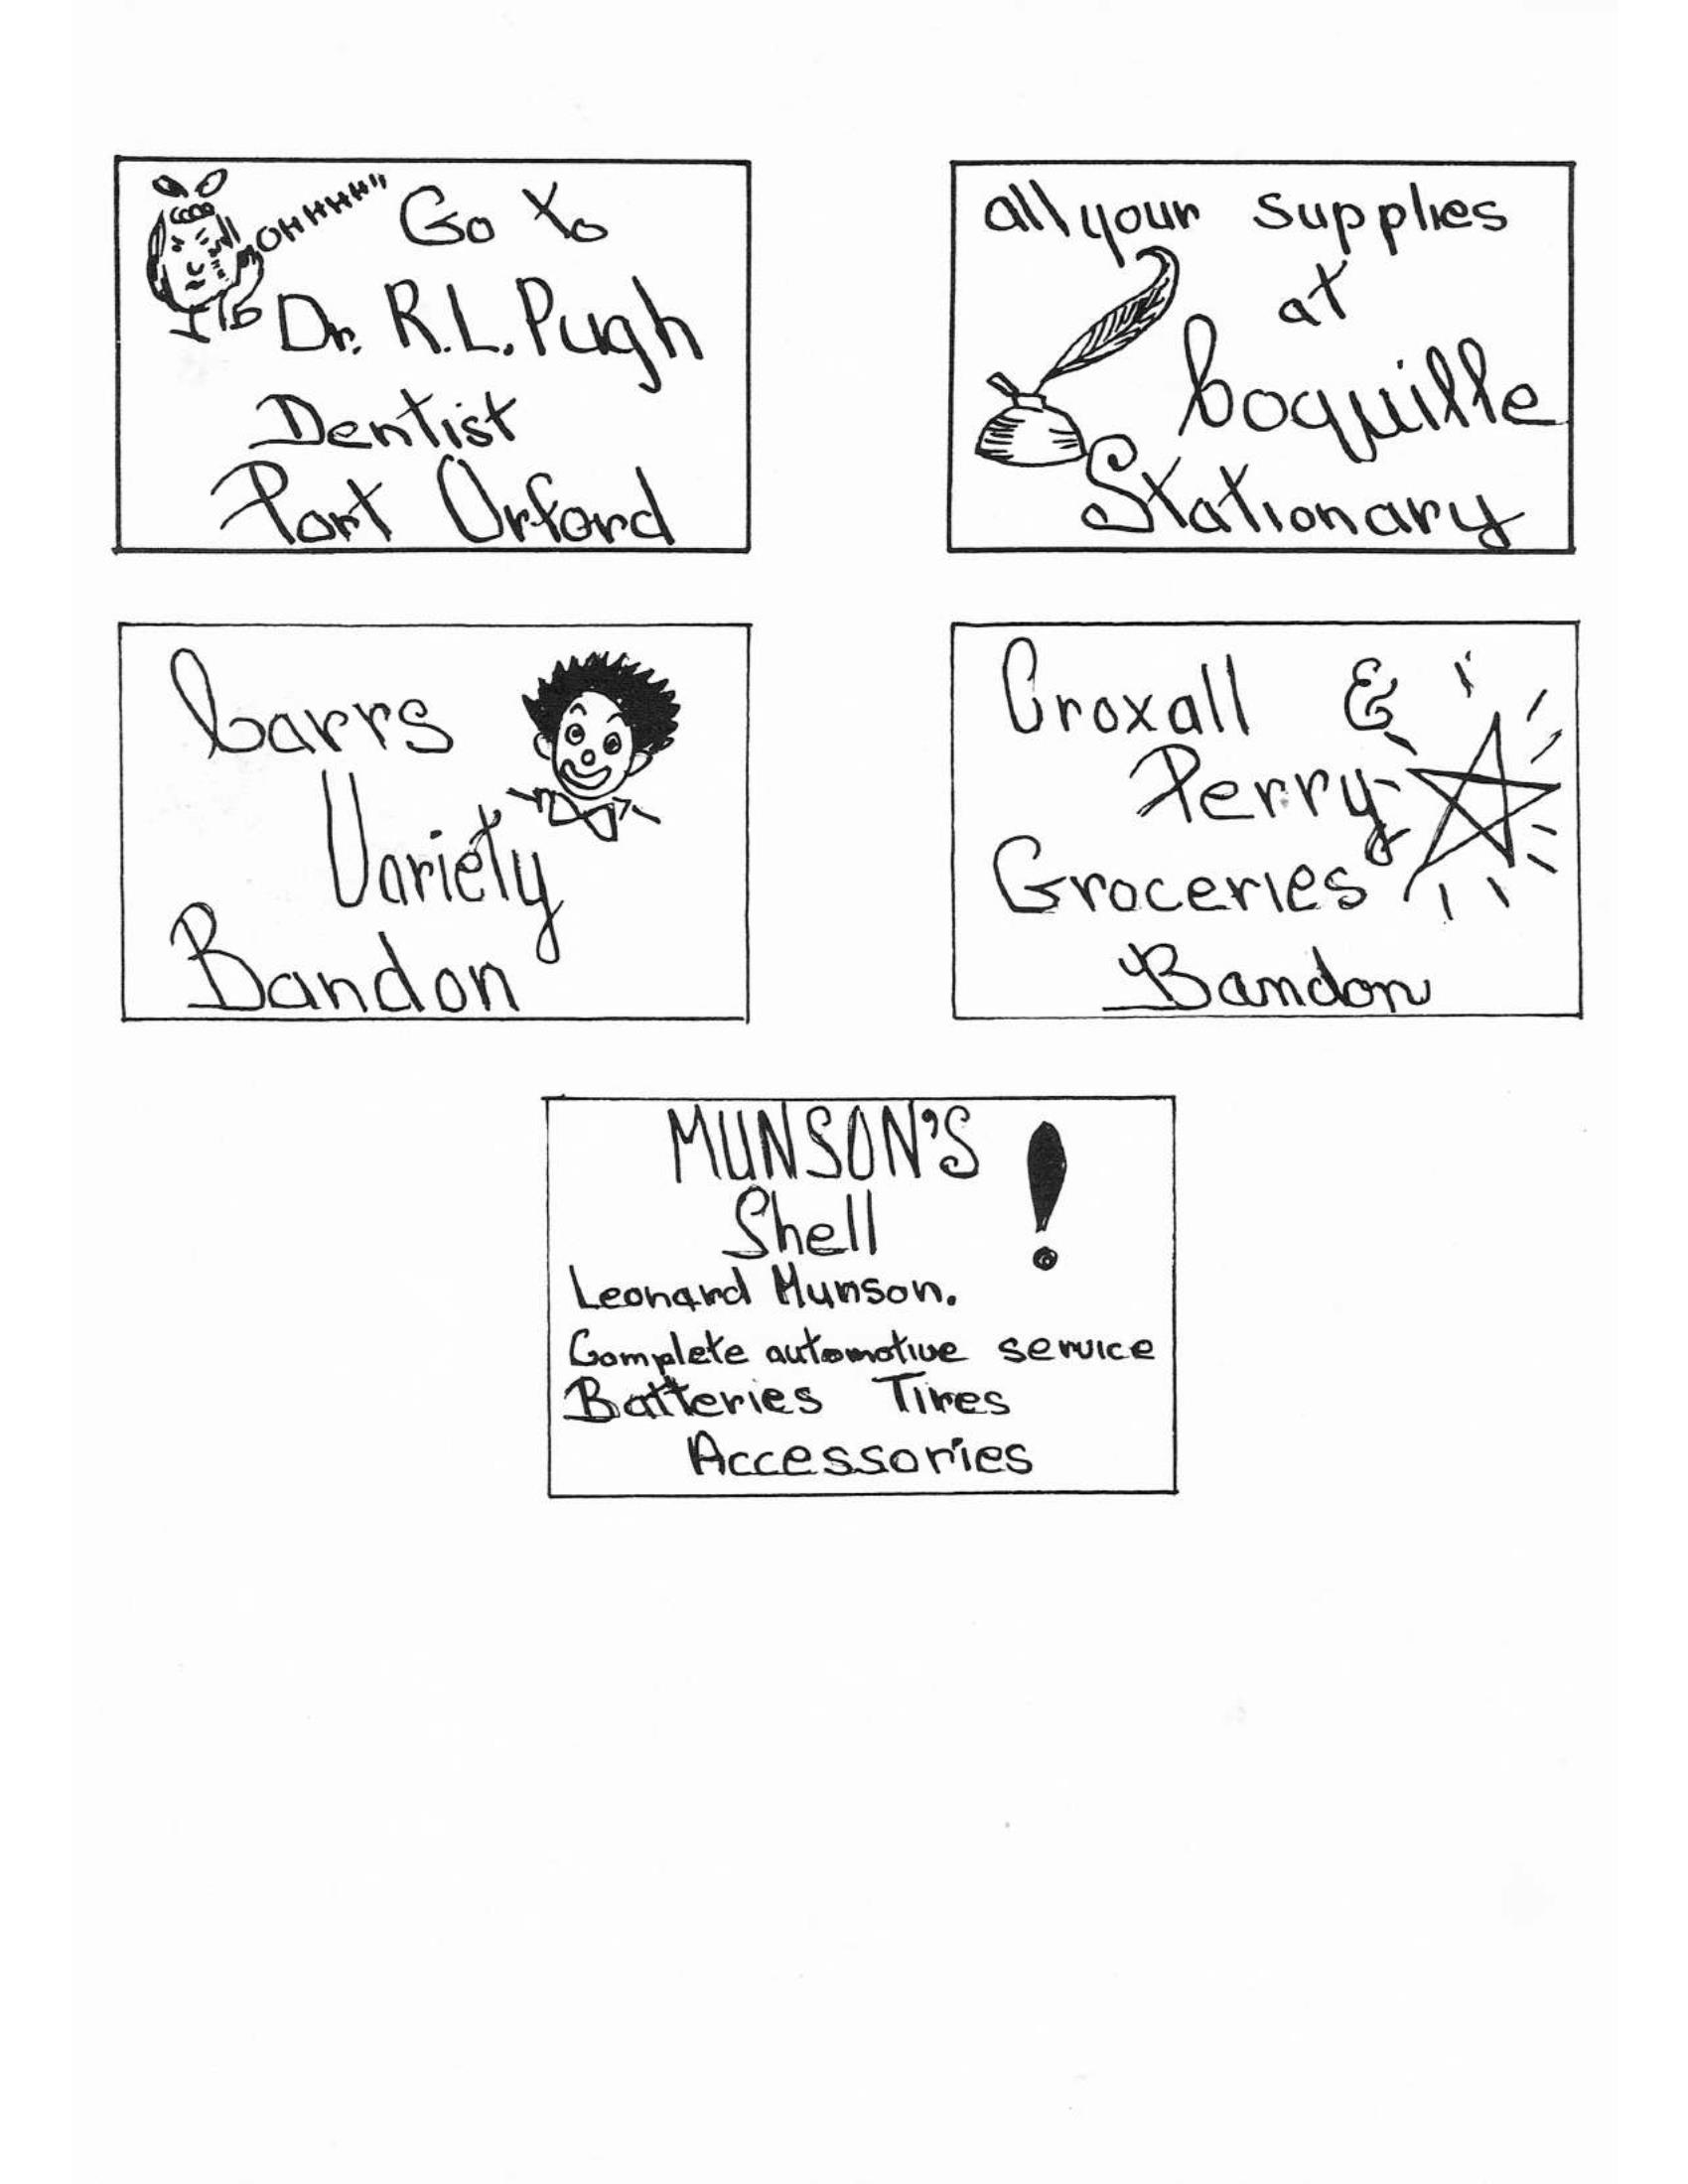 OHHHHH" Go to
Dr. R.L. Pugh
Dentist
Port Orford
all your supplies
at
Coquille
Stationary
Carrs
Variety
Bandon
Croxall &
Perry
Groceries
Bandon
MUNSON'S
Shell
Leonard Munson.
Complete automotive service
Batteries Tires
Accessories